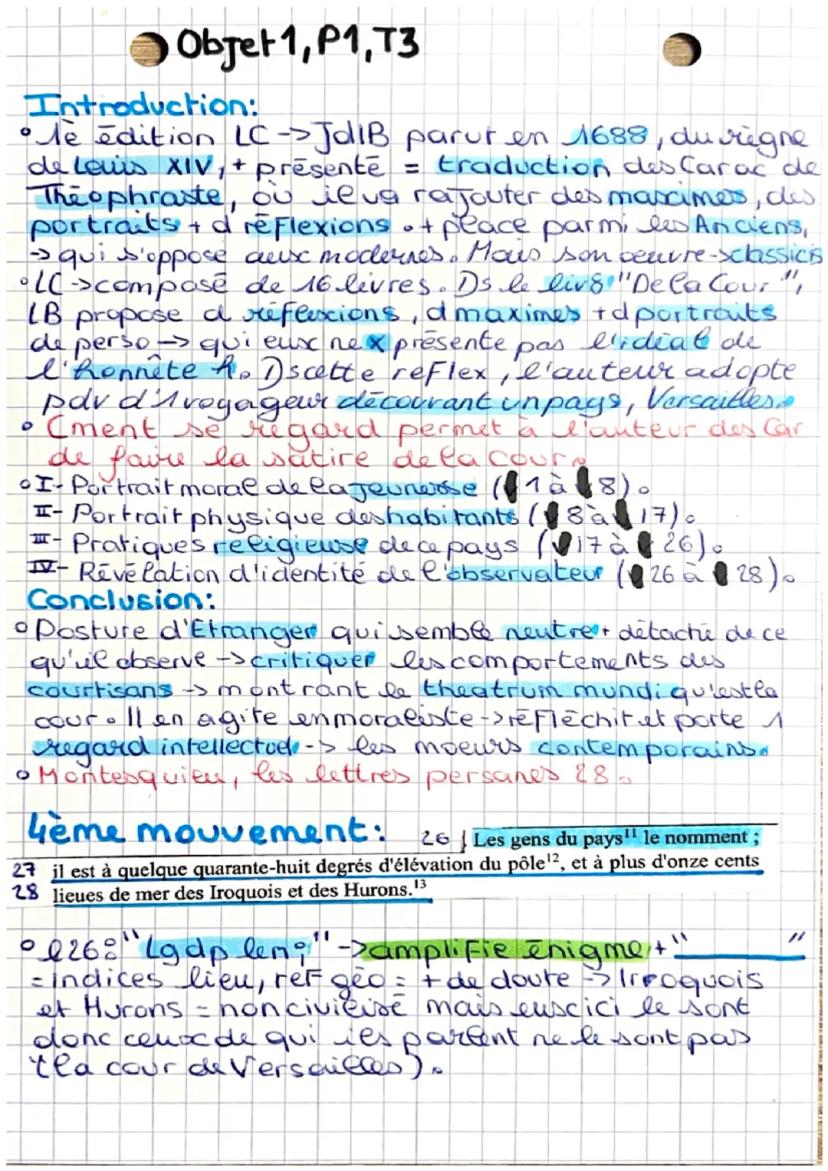 Objet 1, P1, T3
Introduction:
• 1è édition LC -> JdlB parut en 1688, du règne
de Louis XIV, + présenté = traduction des Carac de
Théophraste, où il va rajouter des maximes, des
portraits + d réflexions. + place parmi les Anciens,
-> qui s'oppose aux modernes. Mais son oeuvre -> classicis
• LC -> composé de 16 livres. Ds le liv 8 "De la Cour",
LB propose d réflexions, d maximes + d portraits
de perso -> qui eux ne présente pas l'idéal de
l'honnête h. Ds cette reflex, l'auteur adopte
pdv d'1 voyageur découvrant un pays, Versailles.
• Cment se regard permet à l'auteur des Car
de faire la satire de la cour.
• I- Portrait moral de la jeunesse (1 à 8).
II- Portrait physique des habitants (8 à 17).
III- Pratiques religieuse de ce pays (17 à 26).
IV- Révélation d'identité de l'observateur (26 à 28).
Conclusion:
• Posture d'Etranger qui semble neutre + détaché de ce
qu'il observe -> critiquer les comportements des
courtisans -> montrant le theatrum mundi qu'est la
cour. Il en agite en moraliste -> réfléchit et porte 1
regard intellectuel -> les moeurs contemporains.
• Montesquieu, les lettres persanes 28.
4ème mouvement: 26 Les gens du pays¹¹ le nomment ;
27 il est à quelque quarante-huit degrés d'élévation du pôle¹², et à plus d'onze cents
28 lieues de mer des Iroquois et des Hurons.¹³
• l26: "Lgdp len;" -> amplifie énigme + "______"
= indices lieu, ref géo = + de doute -> Irroquois
et Hurons = non civilisé mais eux ici le sont
donc ceux de qui iels parlent ne le sont pas
(la cour de Versailles).